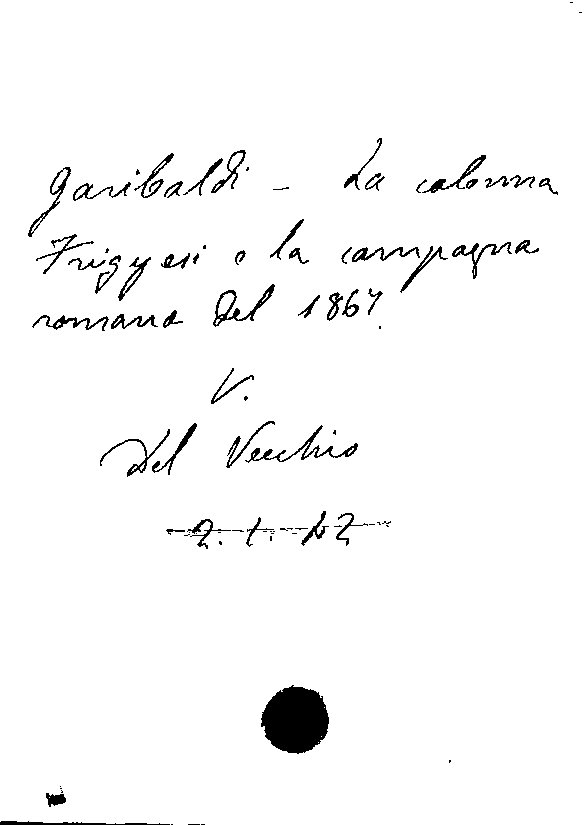 Garibaldi - La colonna
Frigyesi e la campagna
romana del 1867.
V.
Del Vecchio
2. 1. 12